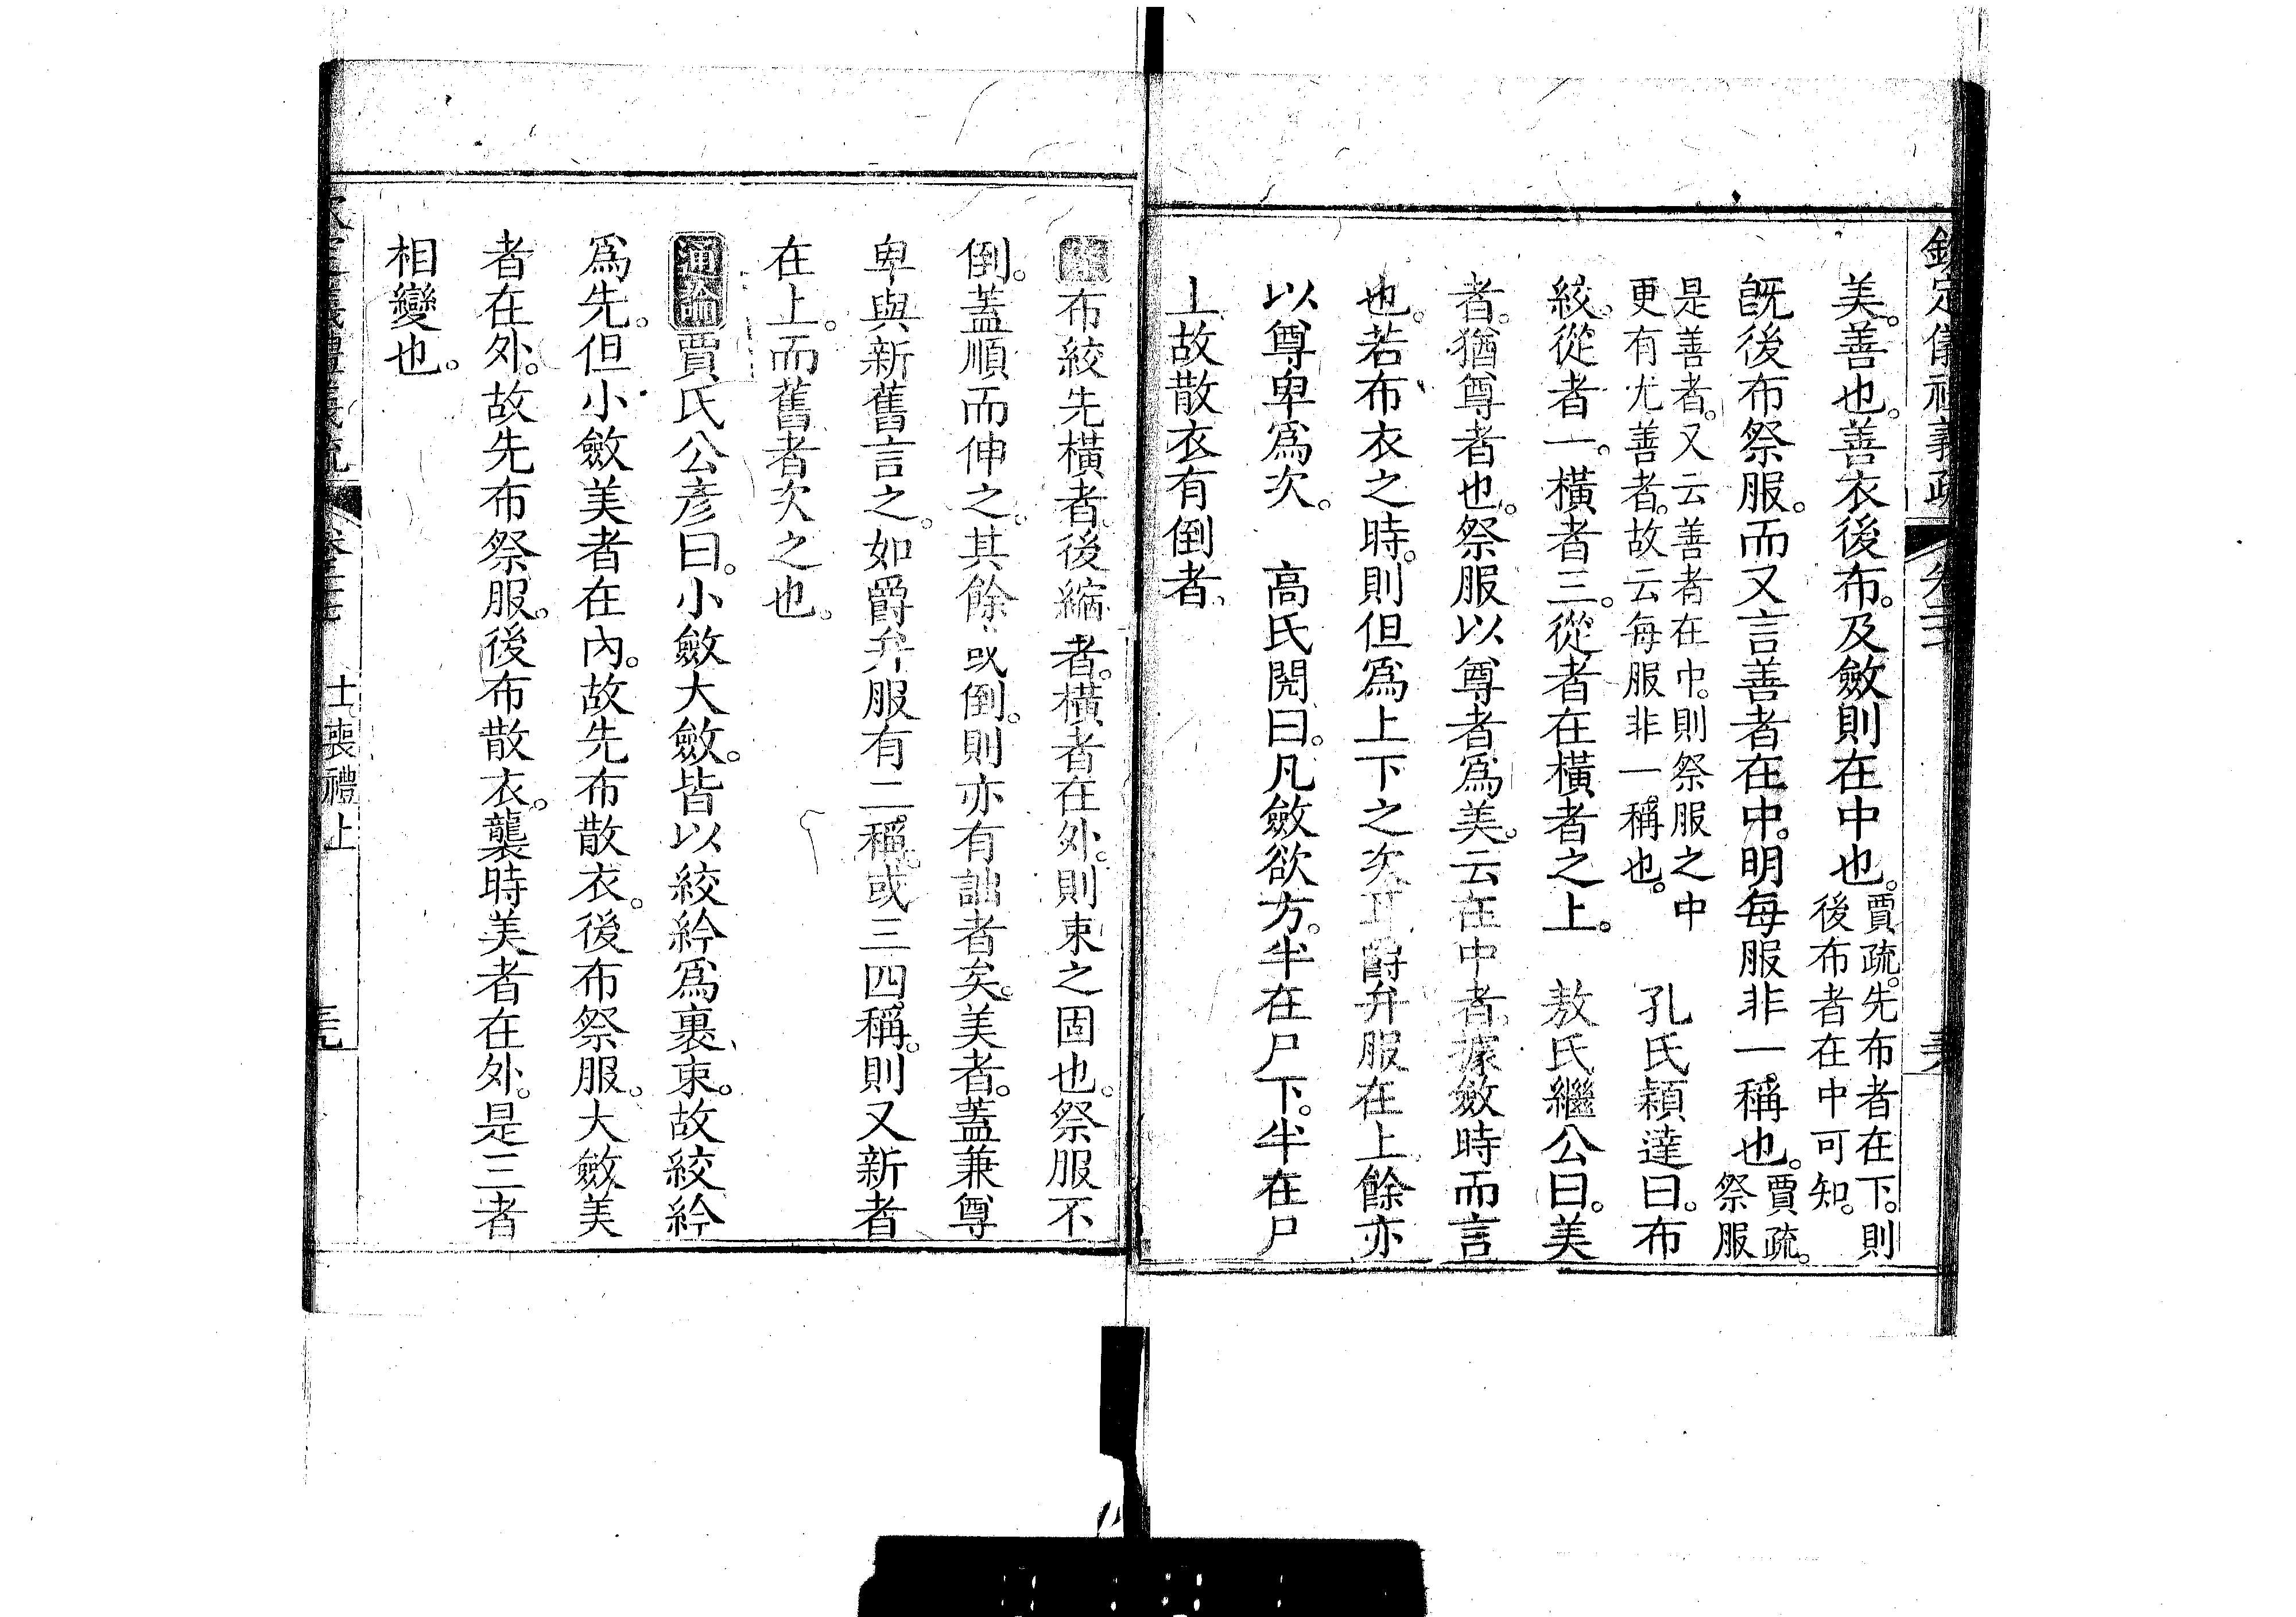 欽定儀禮義疏 卷二十
美。善也。善衣後布。及斂則在中也。賈疏。先布者在下。則後布者在中可知。
旣後布祭服。而又言善者在中。明每服非一稱也。賈疏。祭服
是善者。又云善者在中。則祭服之中更有尤善者。故云每服非一稱也。 孔氏穎達曰。布
絞。從者一。橫者三。從者在橫者之上。 敖氏繼公曰。美
者。猶尊者也。祭服以尊者爲美。云在中者。據斂時而言
也。若布衣之時。則但爲上下之次耳。爵弁服在上。餘亦
以尊卑爲次。 高氏閌曰。凡斂欲方。半在尸下。半在尸
上。故散衣有倒者。
案布絞先橫者。後縮者。橫者在外。則束之固也。祭服不
倒。蓋順而伸之。其餘或倒。則亦有詘者矣。美者。蓋兼尊
卑與新舊言之。如爵弁服有二稱。或三四稱。則又新者
在上。而舊者次之也。
通論賈氏公彥曰。小斂大斂。皆以絞紟爲裏束。故絞紟
爲先。但小斂美者在內。故先布散衣。後布祭服。大斂美
者在外。故先布祭服。後布散衣。襲時美者在外。是三者
相變也。
士喪禮上